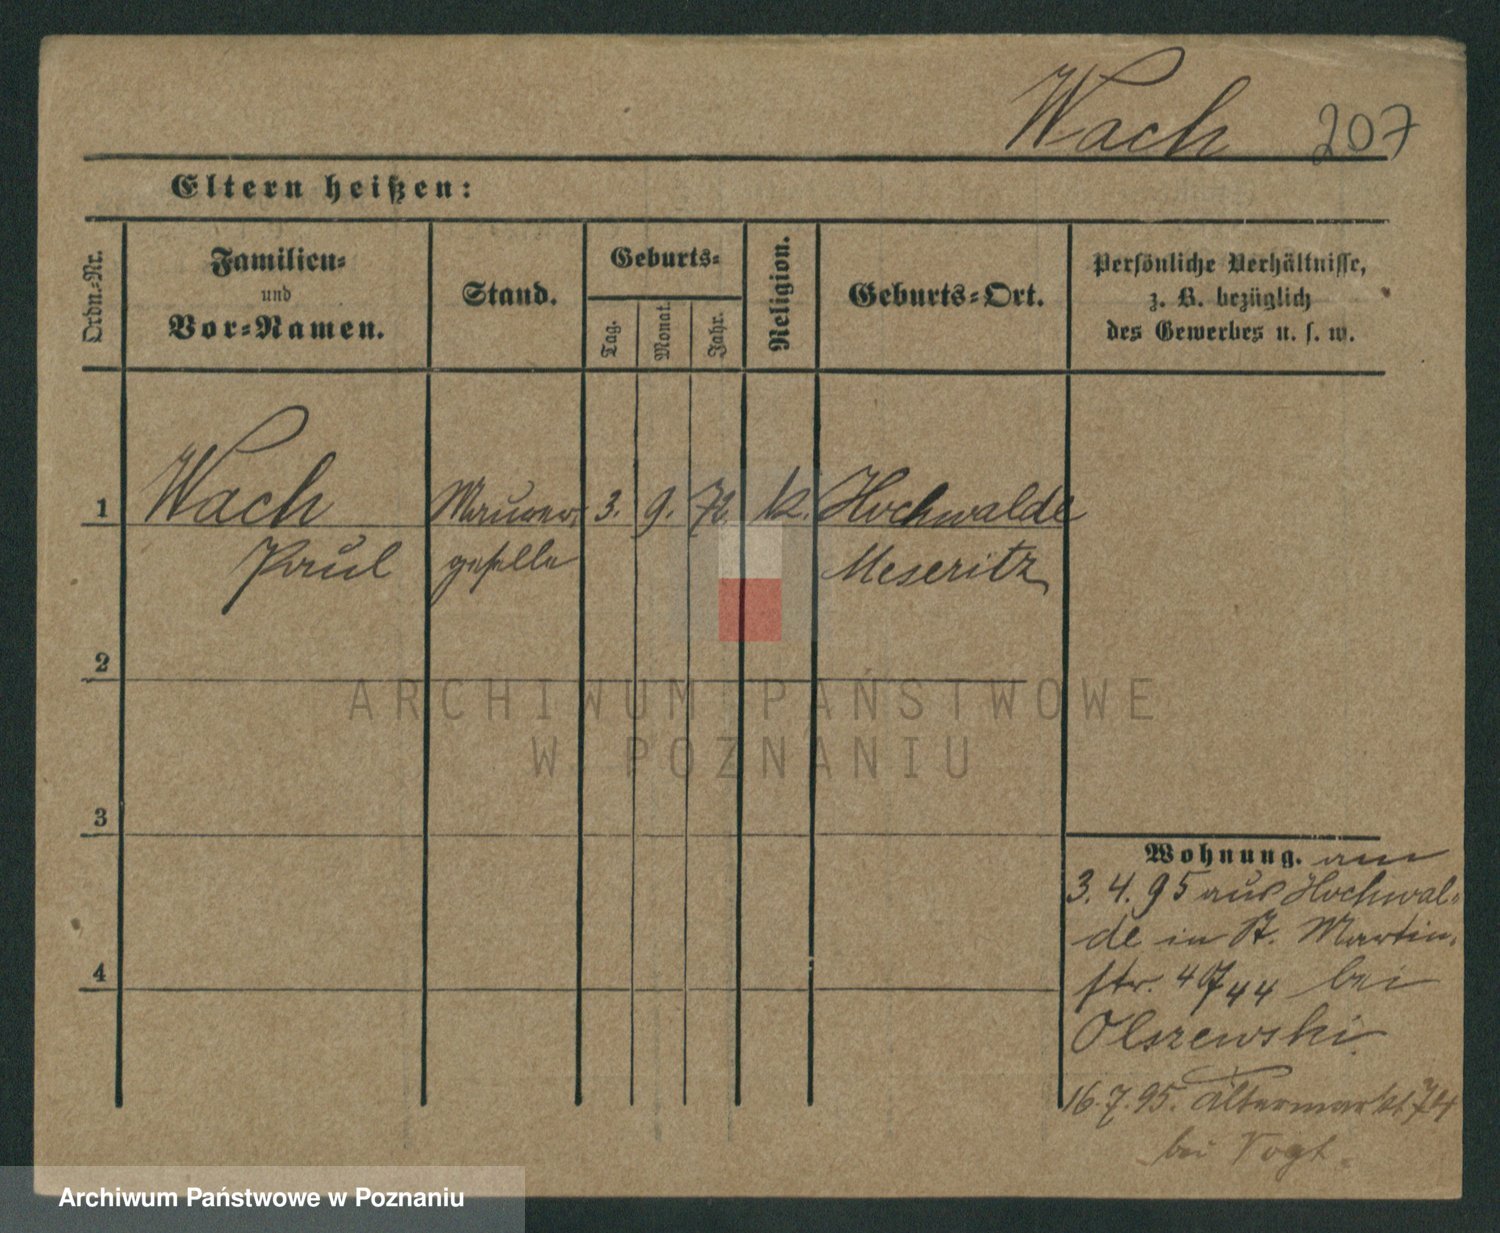 Wach 207
Eltern heißen:
Ordn.-Nr.
Familien-
und
Vor-Namen.
Stand.
Geburts-
Tag.
Monat.
Jahr.
Religion.
Geburts-Ort.
Persönliche Verhältnisse,
z. B. bezüglich
des Gewerbes u. s. w.
1 Wach Maurer- 3. 9. 72. k. Hochwalde
Paul geselle Meseritz
2
3
4
Wohnung. am
3. 4. 95 aus Hochwal-
de in St. Martin-
str. bei
Olszewski
16.7.95. Altermarkt
bei Vogt.
ARCHIWUM PAŃSTWOWE
W POZNANIU
Archiwum Państwowe w Poznaniu